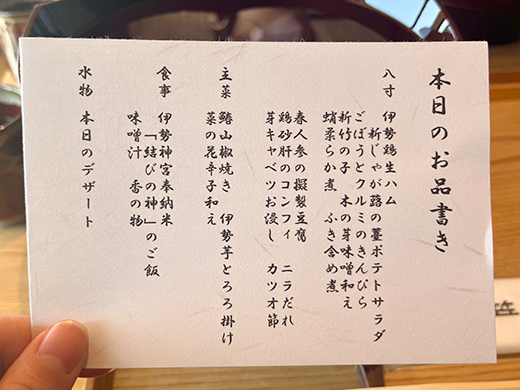 本日のお品書き
八寸 伊勢鶏生ハム
新じゃが蕗の薹ポテトサラダ
ごぼうとクルミのきんぴら
新竹の子 木の芽味噌和え
蛸柔らか煮 ふき含め煮
春人参の擬製豆腐
鶏砂肝のコンフィ ニラだれ
芽キャベツお浸し カツオ節
主菜 鰆山椒焼き 伊勢芋とろろ掛け
菜の花辛子和え
食事 伊勢神宮奉納米
「結びの神」のご飯
味噌汁 香の物
水物 本日のデザート